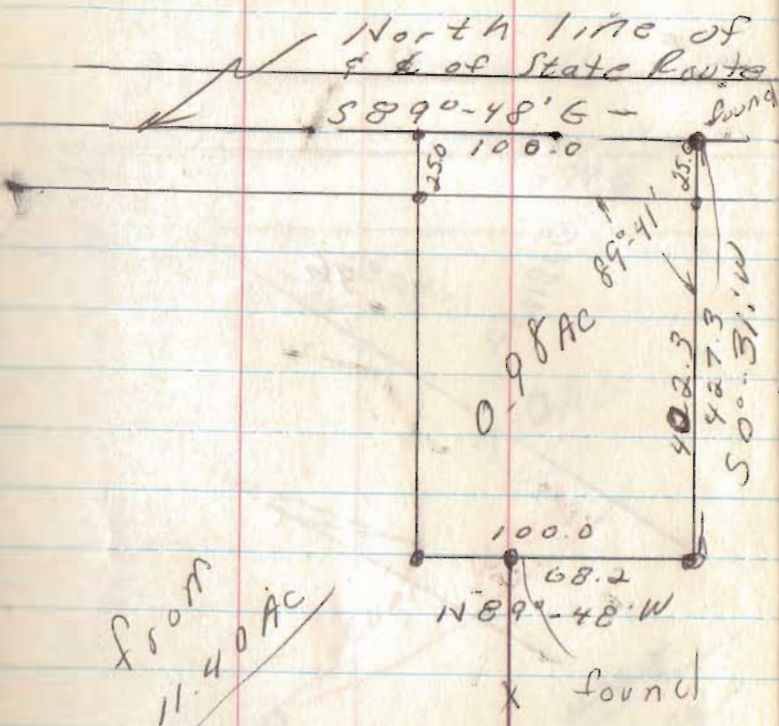 North line of
& ℄ of State Route
S 89°-48' E -
found
100.0
25.0
25.0
89°-41'
0.98 AC
402.3
427.3
S 0°-31' W
100.0
68.2
N 89°-48' W
from
11.40 AC
X found